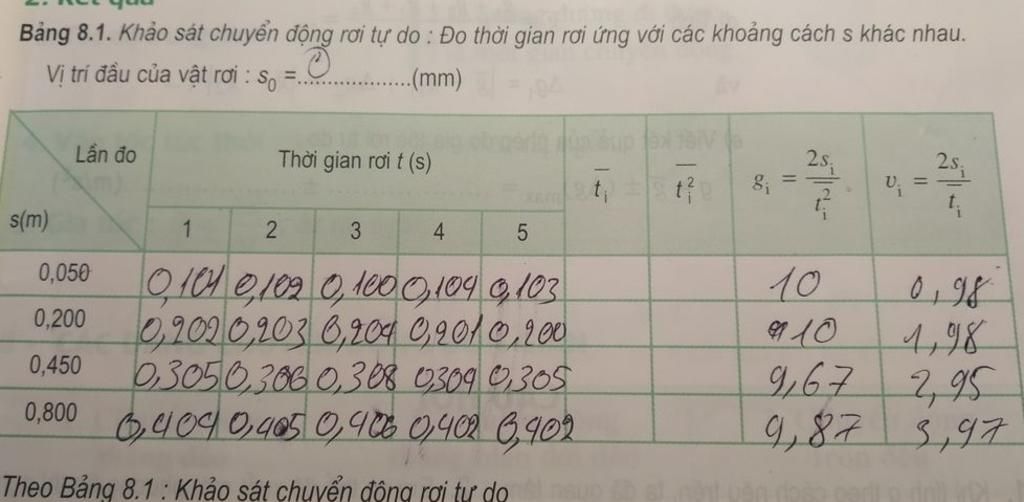 2. Kết quả
Bảng 8.1. Khảo sát chuyển động rơi tự do : Đo thời gian rơi ứng với các khoảng cách s khác nhau.
Vị trí đầu của vật rơi : s₀ =...0...(mm)
Lần đo Thời gian rơi t (s) t̄ᵢ t̄ᵢ² gᵢ = 2sᵢ / t̄ᵢ² vᵢ = 2sᵢ / t̄ᵢ
s(m) 1 2 3 4 5
0,050 0,101 0,102 0,100 0,104 0,103 10 0,98
0,200 0,202 0,203 0,204 0,201 0,200 10 1,98
0,450 0,305 0,306 0,308 0,304 0,305 9,67 2,95
0,800 0,404 0,405 0,406 0,402 0,402 9,87 3,97
Theo Bảng 8.1 : Khảo sát chuyển động rơi tự do